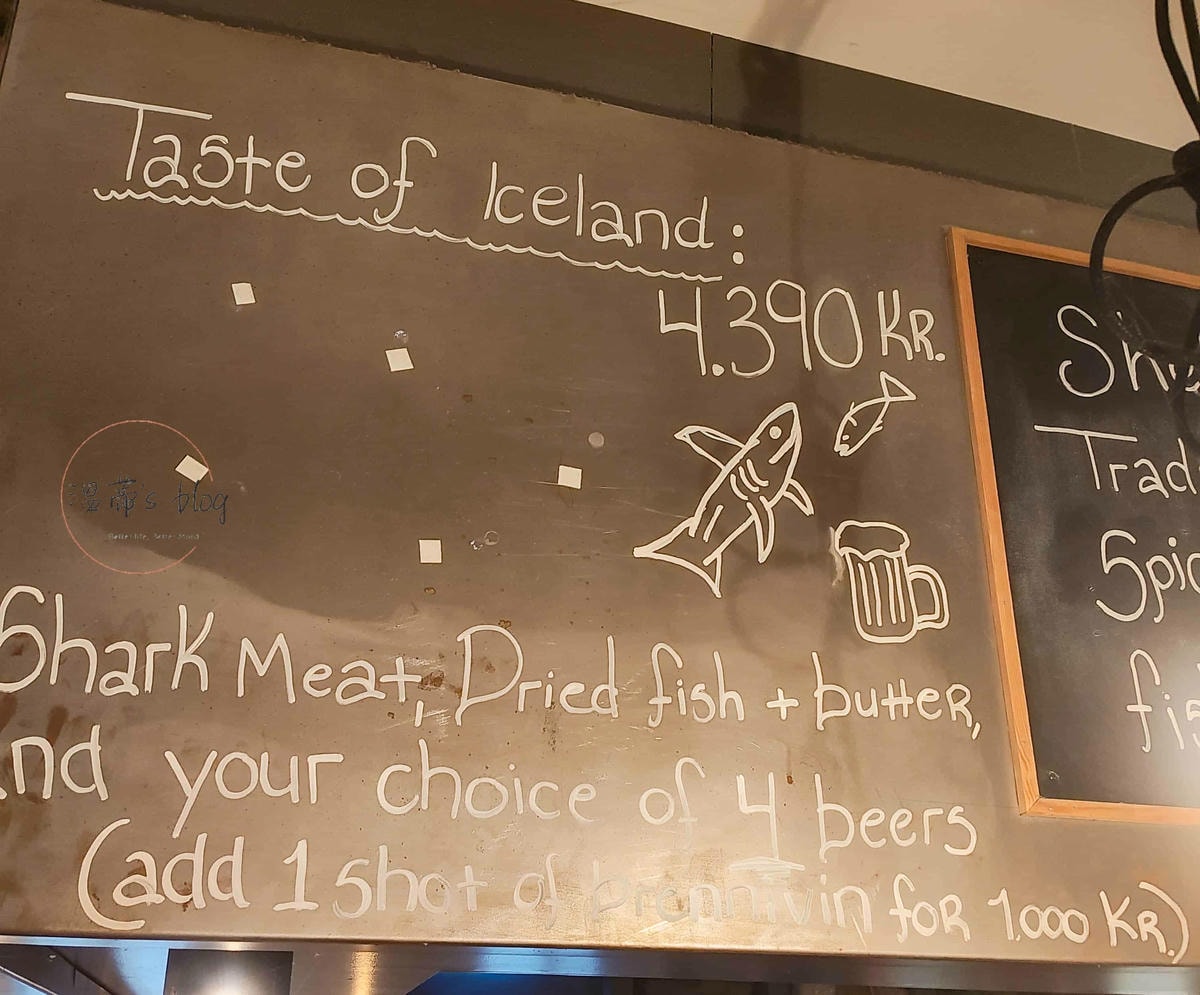 Taste of Iceland:
4.390 KR.
Shark Meat, Dried fish + butter,
and your choice of 4 beers
(add 1 shot of brennivin for 1.000 KR.)
Trad
Spic
fis
漫蒂's blog
Better life, Better Mood